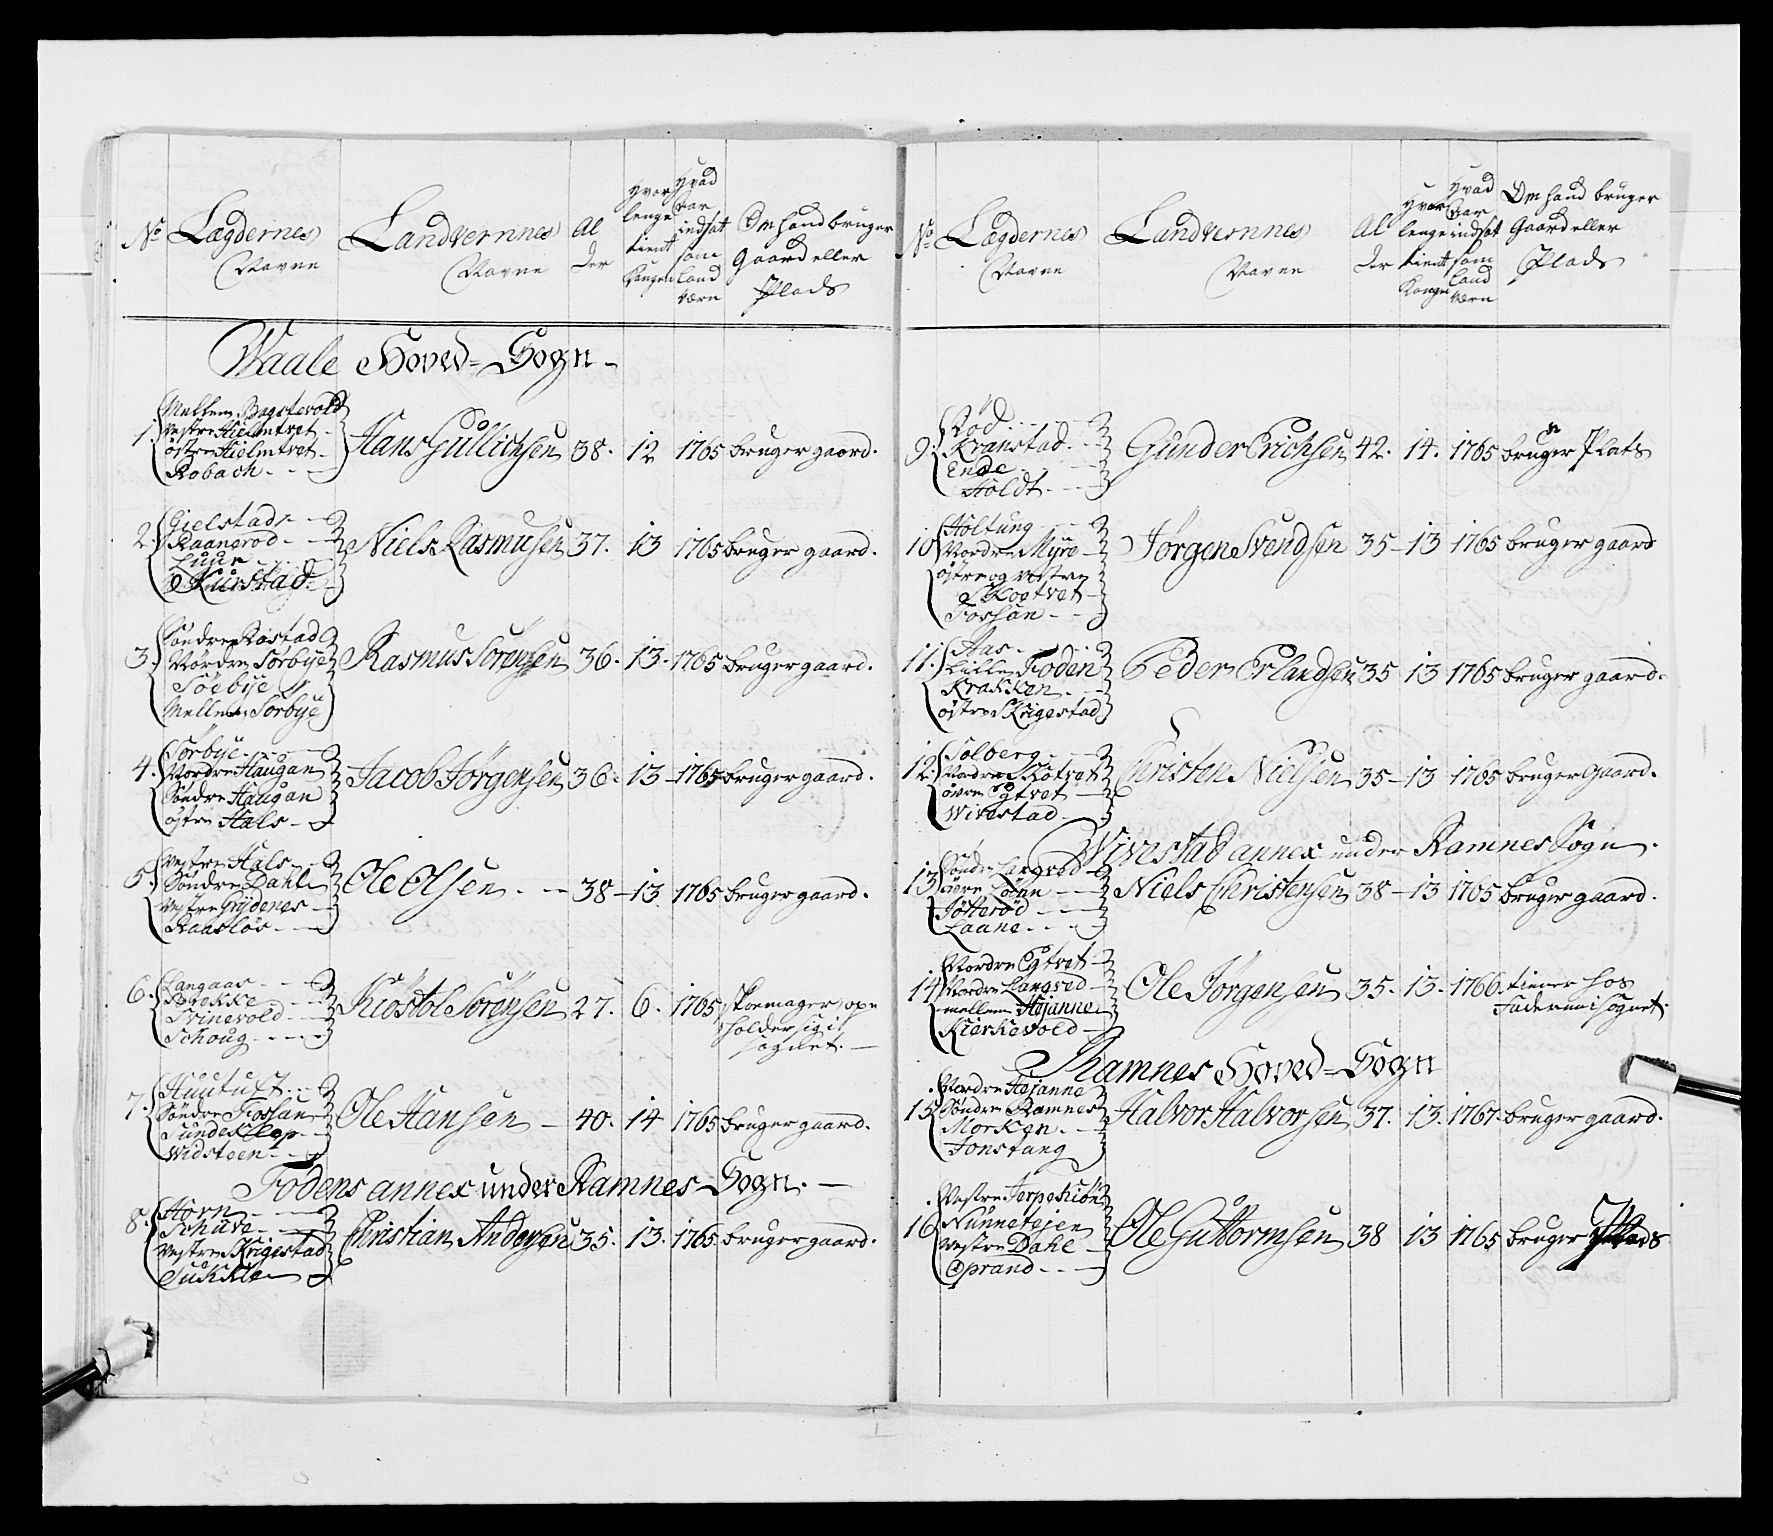 No Lægdernes Navne Landvernnes Navne Al der Hvor lenge tient Kongen Hvad Aar indsat som Land værn Om hand bruger Gaard eller Plads
Waale Hoved-Sogn
1. Mellem Bagstevold
Vestre Hielmtvet
østre Hielmtvet
Robach
Hans Gullichsen 38. 12 1765 bruger gaard.
2. Gielstad
Raanerød
Luur
Kiirstad
Niels Rasmusen 37. 13 1765 bruger gaard.
3. Søndre Rostad
Nordre Sørbye
Søebye
Mellem Sørbye
Rasmus Sørensen 36. 13. 1765 bruger gaard.
4. Sørbye
Nordre Haugan
Søndre Haugan
østre Hals
Jacob Jørgensen 36. 13 1765 bruger gaard.
5. Vestre Hals
Søndre Dahl
Vestre Grydenes
Raasløs
Ole Olsen 38 13 1765 bruger gaard.
6. Langaas
Brekke
Svinevold
Schoug
Kiøstol Sørensen 27. 6. 1765 skoemager, ope
holder sig i
sognet.
7. Huutuft
Søndre Fossan
Sundeklep
Widsteen
Ole Hansen 40. 14 1765 bruger gaard.
Fodens annex under Ramnes Sogn.
8. Horn
Schare
Vestre Krigestad
Sukke
Christian Andersen 35. 13. 1765 bruger gaard.
No Lægdernes Navne Landvernnes Navne Al der Hvor lenge tient Kongen Hvad Aar indsat som Land værn Om hand bruger Gaard eller Plads
9. Rød
Kranstad
Ende
Holdt
Gunder Erichsen 42. 14. 1765 bruger Plats
10 Holtung
Nordre Myre
østre og Vestre
Skoetvet
Fossan
Jørgen Svendsen 35 13 1765 bruger gaard
11. Aas
Lille Foden
Krakken
østre Krigestad
Peder Erlandsen 35 13 1765 bruger gaard.
12. Solberg
Nordre Røtvet
øvre Egtvet
Wivestad
Christen Nielsen 35 13 1765 bruger Gaard.
Wivestad annex under Ramnes Sogn.
13 Søndre Langrød
øvre Lønn
Jøtterød
Laane
Niels Christensen 38 13 1765 bruger gaard.
14 Nordre Egtvet
Nordre Langrød
mellem Højanne
Kierkevold
Ole Jørgensen 35. 13. 1766. tiener hos
Faderen i sognet.
Ramnes Hoved-Sogn
15 Nordre Højanne
Søndre Ramnes
Morken
Jonstang
Halvor Halvorsen 37. 13. 1767 bruger gaard.
16 Vestre Jerpekiøn
Nunnetejen
Vestre Dahl
Oprand
Ole Guttormsen 38 13 1765 bruger Plads